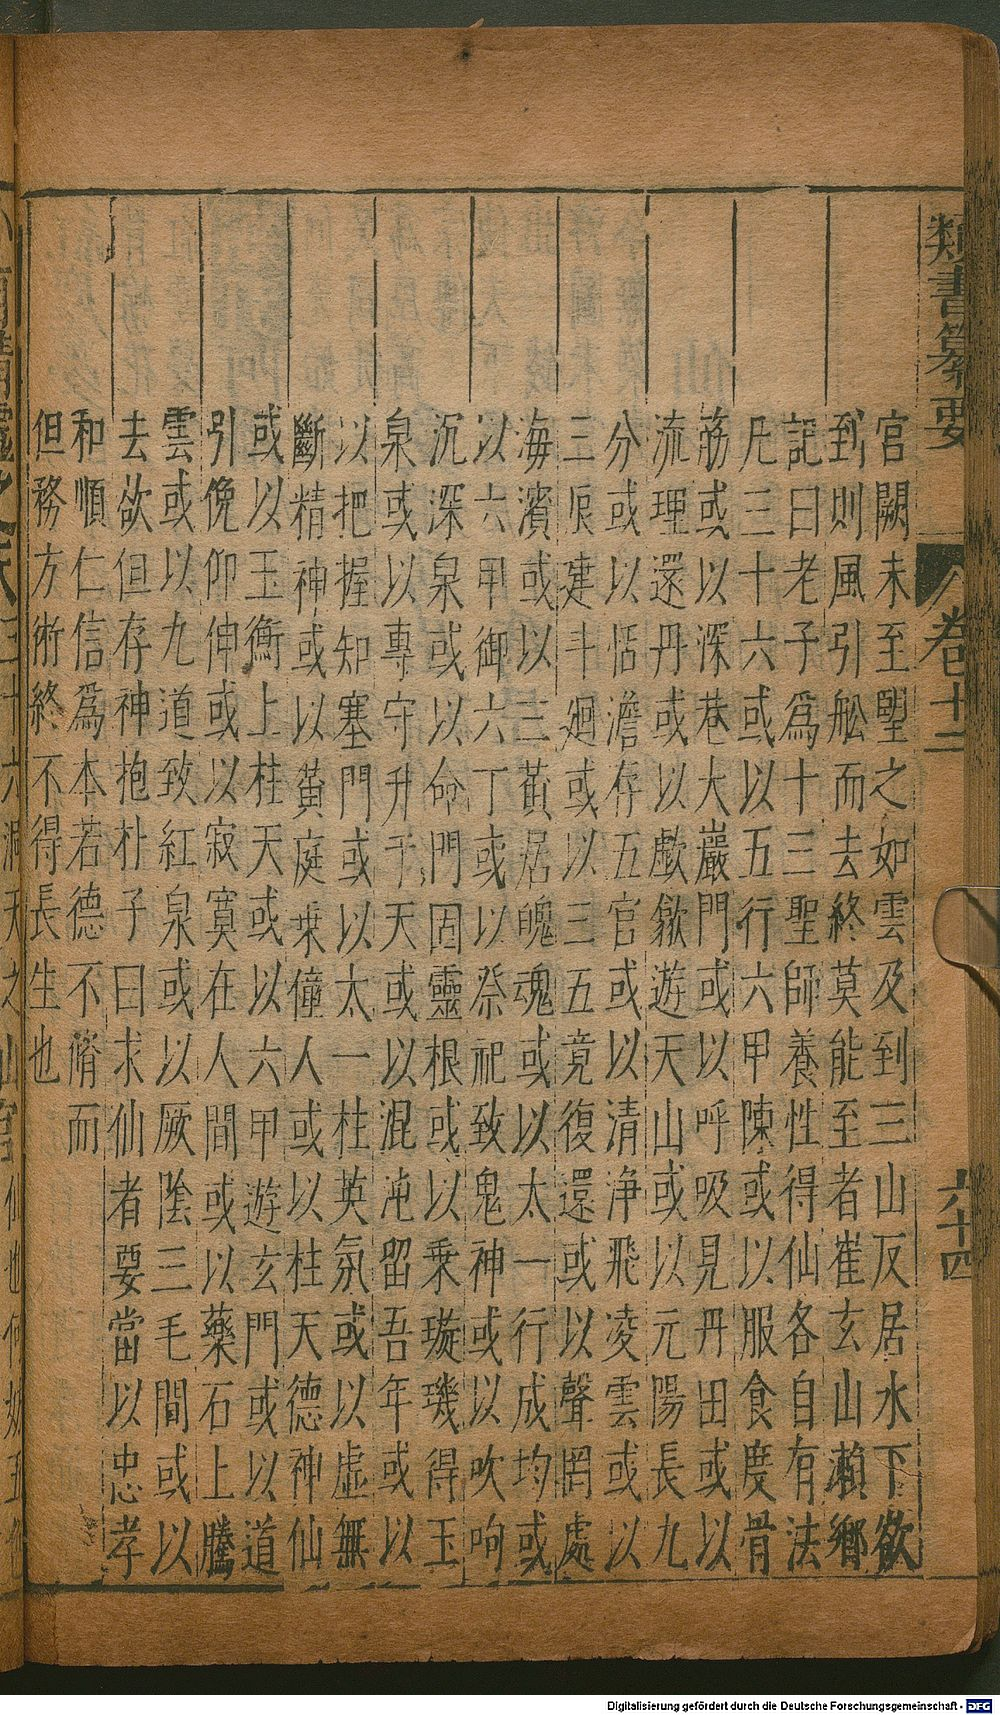 類書纂要
卷十二
六十四
宫闕未至望之如雲及到三山反居水下欲
到則風引舩而去終莫能至者崔玄山瀨鄉
記曰老子爲十三聖師養性得仙各自有法
凡三十六或以五行六甲陳或以服食度骨
筋或以深巷大巖門或以呼吸見丹田或以
流理還丹或以歔歙遊天山或以元陽長九
分或以恬澹存五官或以清淨飛凌雲或以
三辰建斗廻或以三五竟復還或以聲罔處
海濱或以三黃居魄魂或以太一行成均或
以六甲御六丁或以祭祀致鬼神或以吹呴
沉深泉或以命門固靈根或以乘璇璣得玉
泉或以專守升于天或以混沌留吾年或以
以把握知塞門或以太一柱英氛或以虛無
斷精神或以黃庭乘僮人或以柱天德神仙
或以玉衡上柱天或以六甲遊玄門或以道
引俛仰伸或以寂寞在人間或以藥石上騰
雲或以九道致紅泉或以厥陰三毛間或以
去欲但存神抱朴子曰求仙者要當以忠孝
和順仁信爲本若德不脩而
但務方術終不得長生也
Digitalisierung gefördert durch die Deutsche Forschungsgemeinschaft - DFG